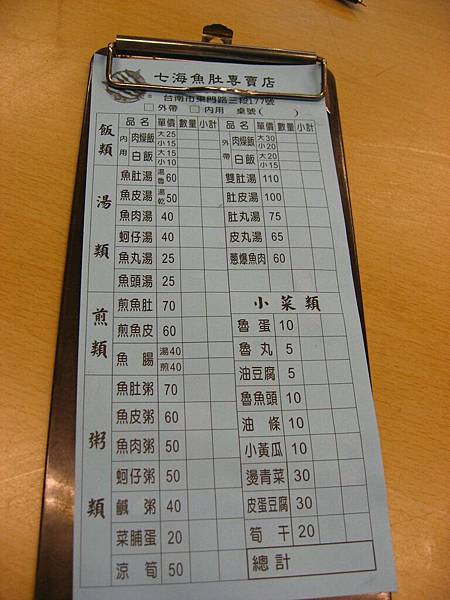 七海魚肚專賣店
台南市東門路三段177號
□外帶 □內用 桌號( )
品名 單價 數量 小計 品名 單價 數量 小計
飯類 內用 肉燥飯 大25 小15 外帶 肉燥飯 大30 小20
白飯 大15 小10 白飯 大20 小15
湯類 魚肚湯 湯魯 60 雙肚湯 110
魚皮湯 湯乾 50 肚皮湯 100
魚肉湯 40 肚丸湯 75
蚵仔湯 40 皮丸湯 65
魚丸湯 25 蔥爆魚肉 60
魚頭湯 25
煎類 煎魚肚 70 小菜類
煎魚皮 60 魯蛋 10
魚腸 湯40 煎40 魯丸 5
粥類 魚肚粥 70 油豆腐 5
魚皮粥 60 魯魚頭 10
魚肉粥 50 油條 10
蚵仔粥 50 小黃瓜 10
鹹粥 40 燙青菜 30
菜脯蛋 20 皮蛋豆腐 30
涼筍 50 筍干 20
總計